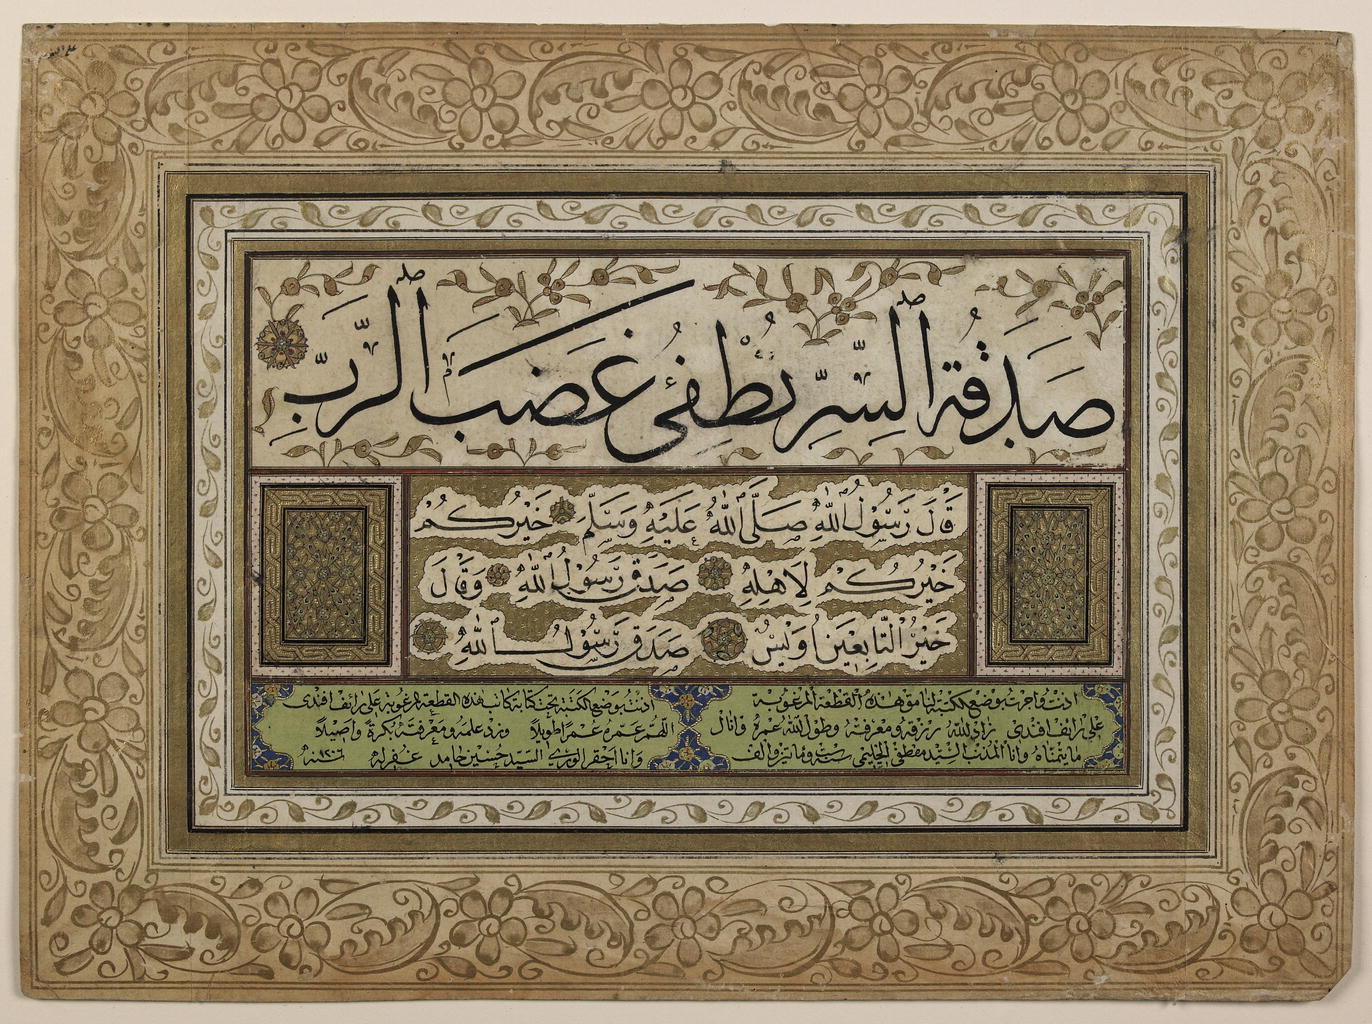 صَدَقَةُ السِّرِّ تُطْفِئُ غَضَبَ الرَّبِّ
قَالَ رَسُولُ اللّٰهِ صَلَّى اللّٰهُ عَلَيْهِ وَسَلَّمَ خَيْرُكُمْ
خَيْرُكُمْ لِاَهْلِهِ صَدَقَ رَسُولُ اللّٰهِ وَقَالَ
خَيْرُ التَّابِعِينَ اُوَيْسٌ صَدَقَ رَسُولُ اللّٰهِ
اذنت واجزت بوضع الكتبة لهذه القطعة المرغوبة
على رائف افندى زاد الله رزقه ومعرفته وطول الله عمره وانال
ما يتمناه وانا المذنب السيد مصطفى الحليمى سنة ومايتين والف
اذنت بوضع الكتبة تحت كتابة كاتب هذه القطعة المرغوبة على رائف افندى
اللهم عمره عمرا طويلا وزد علمه ومعرفته بكرة واصيلا
وانا احقر الورى السيد حسين حامد غفر له سنة ١٢٠٦